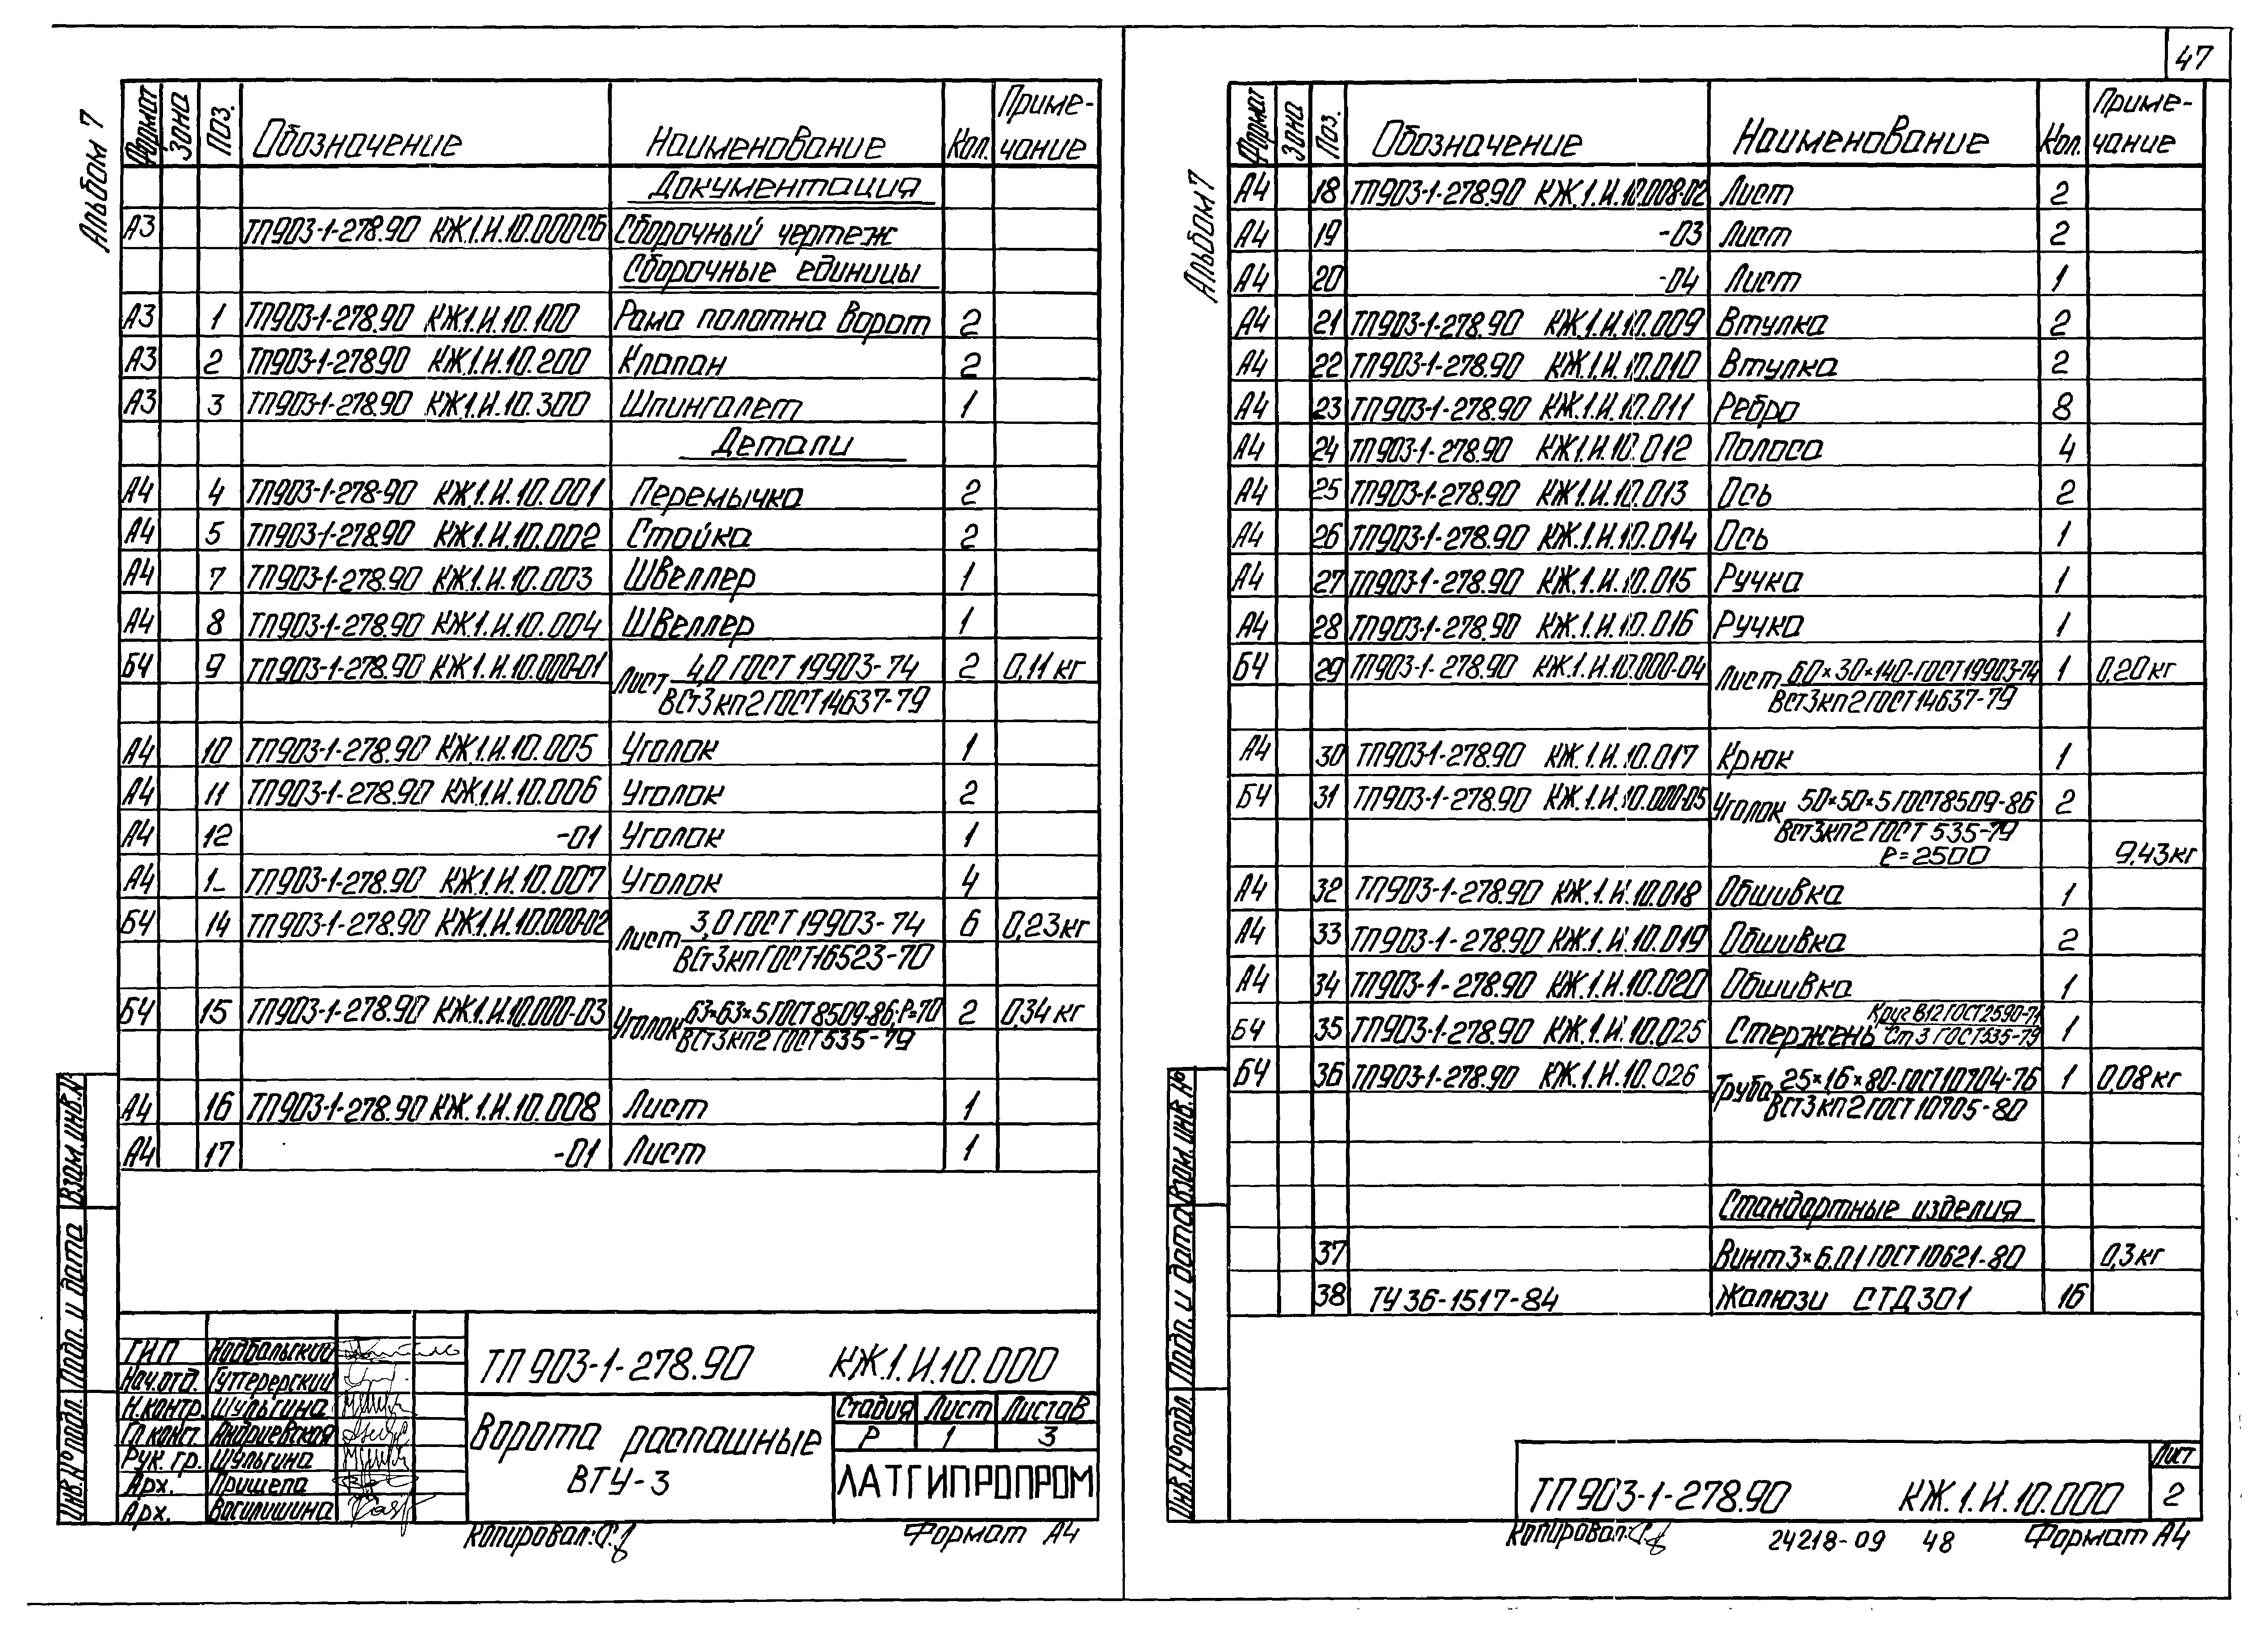 47
Альбом 7
Формат Зона Поз. Обозначение Наименование Кол. Приме-
чание
Документация
А3 ТП903-1-278.90 КЖ.1.И.10.000СБ Сборочный чертеж
Сборочные единицы
А3 1 ТП903-1-278.90 КЖ1.И.10.100 Рама полотна ворот 2
А3 2 ТП903-1-278.90 КЖ.1.И.10.200 Клапан 2
А3 3 ТП903-1-278.90 КЖ1.И.10.300 Шпингалет 1
Детали
А4 4 ТП903-1-278-90 КЖ.1.И.10.001 Перемычка 2
А4 5 ТП903-1-278.90 КЖ.1.И.10.002 Стойка 2
А4 7 ТП903-1-278.90 КЖ.1.И.10.003 Швеллер 1
А4 8 ТП903-1-278.90 КЖ.1.И.10.004 Швеллер 1
БЧ 9 ТП903-1-278.90 КЖ.1.И.10.000-01 Лист 4,0 ГОСТ 19903-74 2 0,11 кг
ВСт3кп2 ГОСТ14637-79
А4 10 ТП903-1-278.90 КЖ.1.И.10.005 Уголок 1
А4 11 ТП903-1-278.90 КЖ1.И.10.006 Уголок 2
А4 12 -01 Уголок 1
А4 1_ ТП903-1-278.90 КЖ.1.И.10.007 Уголок 4
БЧ 14 ТП903-1-278.90 КЖ.1.И.10.000-02 Лист 3,0 ГОСТ 19903-74 6 0,23кг
ВСт3кп ГОСТ16523-70
БЧ 15 ТП903-1-278.90 КЖ.1.И.10.000-03 Уголок 63×63×5 ГОСТ8509-86; ℓ=70 2 0,34 кг
ВСт3кп2 ГОСТ 535-79
А4 16 ТП903-1-278.90 КЖ.1.И.10.008 Лист 1
А4 17 -01 Лист 1
Взам.инв.№
Подп. и дата
Инв.№ подл.
ГИП Надбальский
Нач.отд. Гуттерерский
Н.контр. Шульгина
Гл.конст. Андриевская
Рук. гр. Шульгина
Арх. Пришела
Арх. Василишина
ТП 903-1-278.90 КЖ.1.И.10.000
Ворота распашные
ВТУ-3
Стадия Лист Листов
Р 1 3
ЛАТГИПРОПРОМ
Копировал: Формат А4
Альбом 7
Формат Зона Поз. Обозначение Наименование Кол. Приме-
чание
А4 18 ТП903-1-278.90 КЖ.1.И.10.008-02 Лист 2
А4 19 -03 Лист 2
А4 20 -04 Лист 1
А4 21 ТП903-1-278.90 КЖ.1.И.10.009 Втулка 2
А4 22 ТП903-1-278.90 КЖ.1.И.10.010 Втулка 2
А4 23 ТП903-1-278.90 КЖ.1.И.10.011 Ребро 8
А4 24 ТП903-1-278.90 КЖ1.И.10.012 Полоса 4
А4 25 ТП903-1-278.90 КЖ1.И.10.013 Ось 2
А4 26 ТП903-1-278.90 КЖ.1.И.10.014 Ось 1
А4 27 ТП903-1-278.90 КЖ.1.И.10.015 Ручка 1
А4 28 ТП903-1-278.90 КЖ.1.И.10.016 Ручка 1
БЧ 29 ТП903-1-278.90 КЖ.1.И.10.000-04 Лист 6,0×30×140-ГОСТ19903-74 1 0,20кг
ВСт3кп2 ГОСТ14637-79
А4 30 ТП903-1-278.90 КЖ.1.И.10.017 Крюк 1
БЧ 31 ТП903-1-278.90 КЖ.1.И.10.000-05 Уголок 50×50×5 ГОСТ8509-86 2
ВСт3кп2 ГОСТ 535-79
ℓ=2500 9,43кг
А4 32 ТП903-1-278.90 КЖ.1.И.10.018 Обшивка 1
А4 33 ТП903-1-278.90 КЖ.1.И.10.019 Обшивка 2
А4 34 ТП903-1-278.90 КЖ.1.И.10.020 Обшивка 1
БЧ 35 ТП903-1-278.90 КЖ.1.И.10.025 Стержень Круг В12 ГОСТ2590-71 1
Ст 3 ГОСТ535-79
БЧ 36 ТП903-1-278.90 КЖ.1.И.10.026 Труба 25×1,6×80-ГОСТ10704-76 1 0,08кг
ВСт3кп2 ГОСТ 10705-80
Стандартные изделия
37 Винт 3×6.01 ГОСТ10621-80 0,3кг
38 ТУ 36-1517-84 Жалюзи СТД301 16
Взам.инв.№
Подп. и дата
Инв.№ подл.
ТП903-1-278.90 КЖ.1.И.10.000
Лист
2
Копировал: 24218-09 48 Формат А4